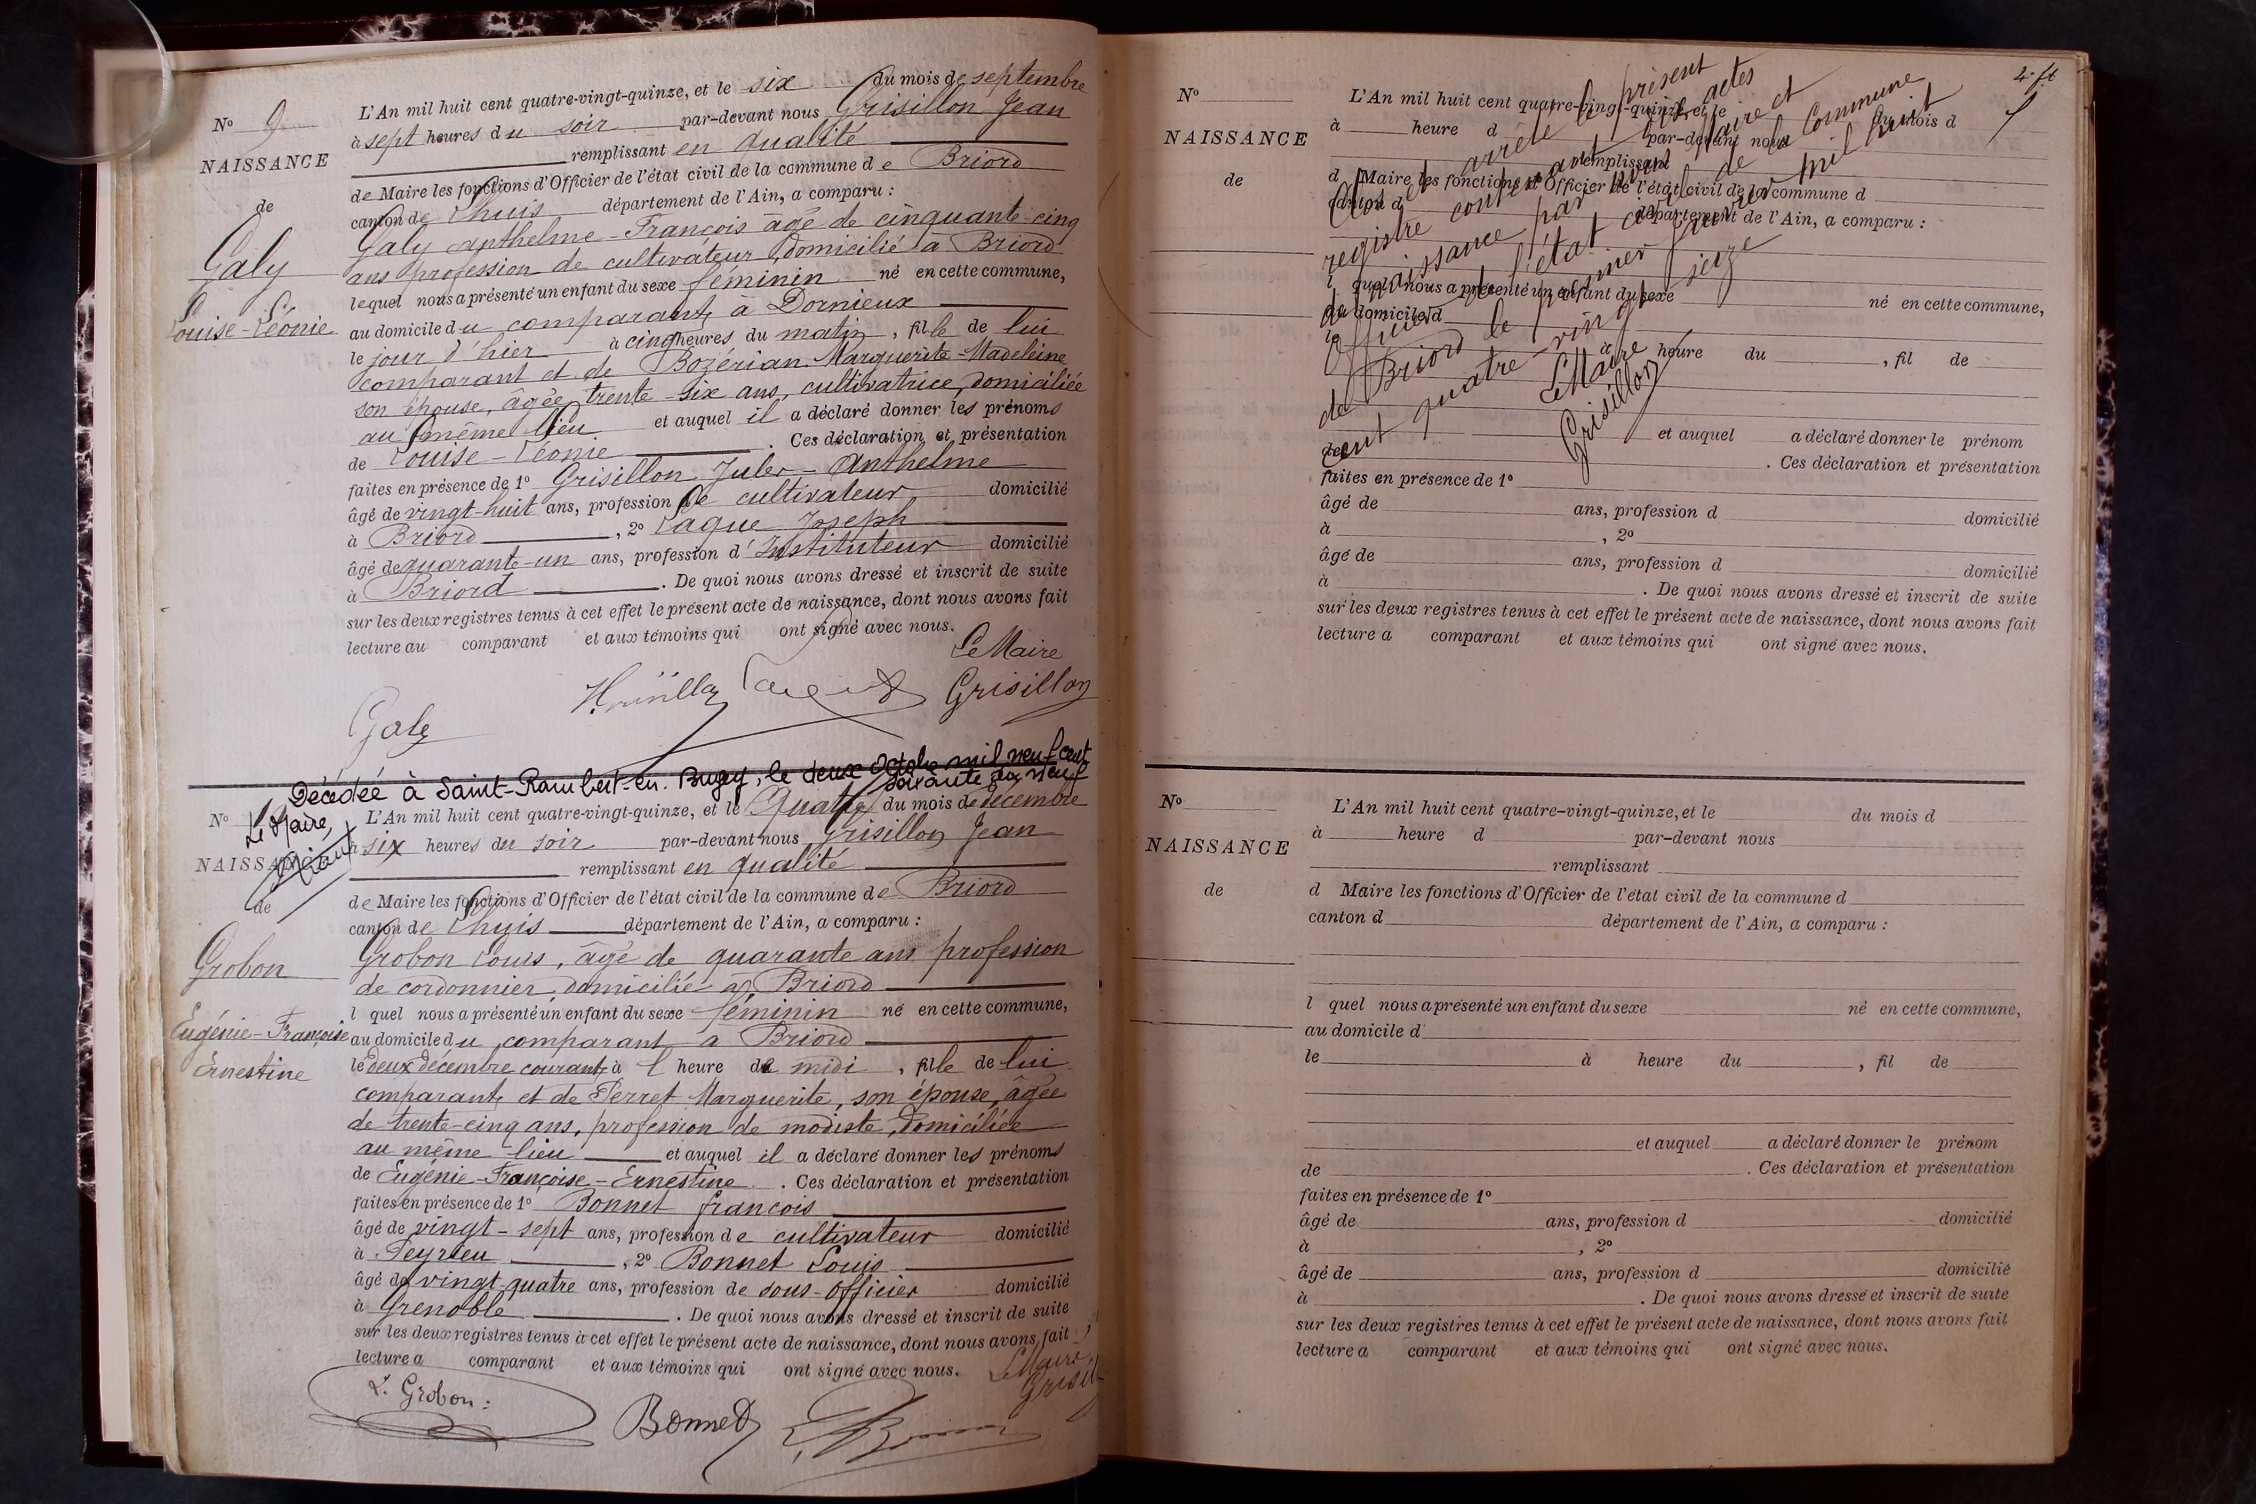 No 9
NAISSANCE
de
Galy
Louise-Léonie
L'An mil huit cent quatre-vingt-quinze, et le six du mois de septembre
à sept heures du soir par-devant nous Grisillon Jean
remplissant en qualité
de Maire les fonctions d'Officier de l'état civil de la commune de Briord
canton de Lhuis département de l'Ain, a comparu :
Galy Anthelme-François âgé de cinquante-cinq
ans profession de cultivateur, domicilié à Briord
lequel nous a présenté un enfant du sexe féminin né en cette commune,
au domicile du comparant, à Dornieux
le jour d'hier à cinq heures du matin, fille de lui
comparant et de Bozérian Marguerite-Madeleine
son épouse, âgée trente-six ans, cultivatrice, domiciliée
au même lieu et auquel il a déclaré donner les prénoms
de Louise-Léonie. Ces déclaration et présentation
faites en présence de 1° Grisillon Jules-Anthelme
âgé de vingt-huit ans, profession de cultivateur domicilié
à Briord, 2° Laque Joseph
âgé de quarante-un ans, profession d'Instituteur domicilié
à Briord. De quoi nous avons dressé et inscrit de suite
sur les deux registres tenus à cet effet le présent acte de naissance, dont nous avons fait
lecture au comparant et aux témoins qui ont signé avec nous.
Le Maire
Grisillon
Galy
Décédée à Saint-Rambert-en-Bugey, le deux Octobre mil neuf cent
soixante dix neuf
Le Maire,
No
NAISSANCE
de
Grobon
Eugénie-Françoise
Ernestine
L'An mil huit cent quatre-vingt-quinze, et le Quatre du mois de décembre
à six heures du soir par-devant nous Grisillon Jean
remplissant en qualité
de Maire les fonctions d'Officier de l'état civil de la commune de Briord
canton de Lhuis département de l'Ain, a comparu :
Grobon Louis, âgé de quarante ans profession
de cordonnier, domicilié à Briord
l quel nous a présenté un enfant du sexe féminin né en cette commune,
au domicile du comparant à Briord
le deux décembre courant, à l heure de midi, fille de lui
comparant, et de Perret Marguerite, son épouse, âgée
de trente-cinq ans, profession de modiste, domiciliée
au même lieu et auquel il a déclaré donner les prénoms
de Eugénie-Françoise-Ernestine. Ces déclaration et présentation
faites en présence de 1° Bonnet françois
âgé de vingt-sept ans, profession de cultivateur domicilié
à Peyrieu, 2° Bonnet Louis
âgé de vingt-quatre ans, profession de sous-officier domicilié
à Grenoble. De quoi nous avons dressé et inscrit de suite
sur les deux registres tenus à cet effet le présent acte de naissance, dont nous avons fait
lecture a comparant et aux témoins qui ont signé avec nous.
Le Maire
L. Grobon
Bonnet
No
NAISSANCE
de
L'An mil huit cent quatre-vingt-quinze, et le du mois d
à heure d par-devant nous
remplissant
d Maire les fonctions d'Officier de l'état civil de la commune d
canton d département de l'Ain, a comparu :
l quel nous a présenté un enfant du sexe né en cette commune,
au domicile d
le à heure du , fil de
et auquel a déclaré donner le prénom
de . Ces déclaration et présentation
faites en présence de 1°
âgé de ans, profession d domicilié
à , 2°
âgé de ans, profession d domicilié
à . De quoi nous avons dressé et inscrit de suite
sur les deux registres tenus à cet effet le présent acte de naissance, dont nous avons fait
lecture a comparant et aux témoins qui ont signé avec nous.
Clos et arrêté le présent
registre contenant dix actes
de naissance par nous Maire et
Officier de l'état civil de la Commune
de Briord le premier janvier mil huit
cent quatre-vingt seize
Le Maire
Grisillon
No
NAISSANCE
de
L'An mil huit cent quatre-vingt-quinze, et le du mois d
à heure d par-devant nous
remplissant
d Maire les fonctions d'Officier de l'état civil de la commune d
canton d département de l'Ain, a comparu :
l quel nous a présenté un enfant du sexe né en cette commune,
au domicile d
le à heure du , fil de
et auquel a déclaré donner le prénom
de . Ces déclaration et présentation
faites en présence de 1°
âgé de ans, profession d domicilié
à , 2°
âgé de ans, profession d domicilié
à . De quoi nous avons dressé et inscrit de suite
sur les deux registres tenus à cet effet le présent acte de naissance, dont nous avons fait
lecture a comparant et aux témoins qui ont signé avec nous.